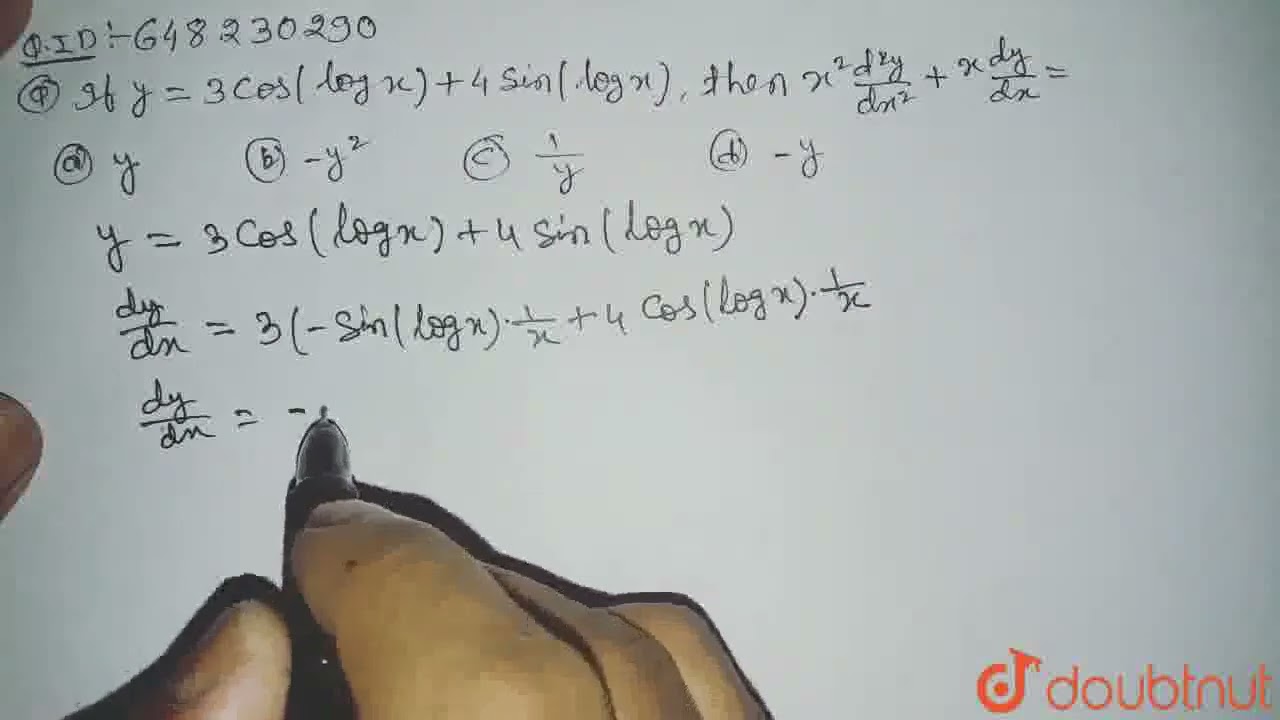 Q.ID:-648230290
(Q) If y = 3 Cos(logx) + 4 Sin(logx), then x² d²y/dx² + x dy/dx =
(a) y (b) -y² (c) 1/y (d) -y
y = 3 Cos(logx) + 4 Sin(logx)
dy/dx = 3(-Sin(logx)·1/x + 4 Cos(logx)·1/x
dy/dx = -
doubtnut